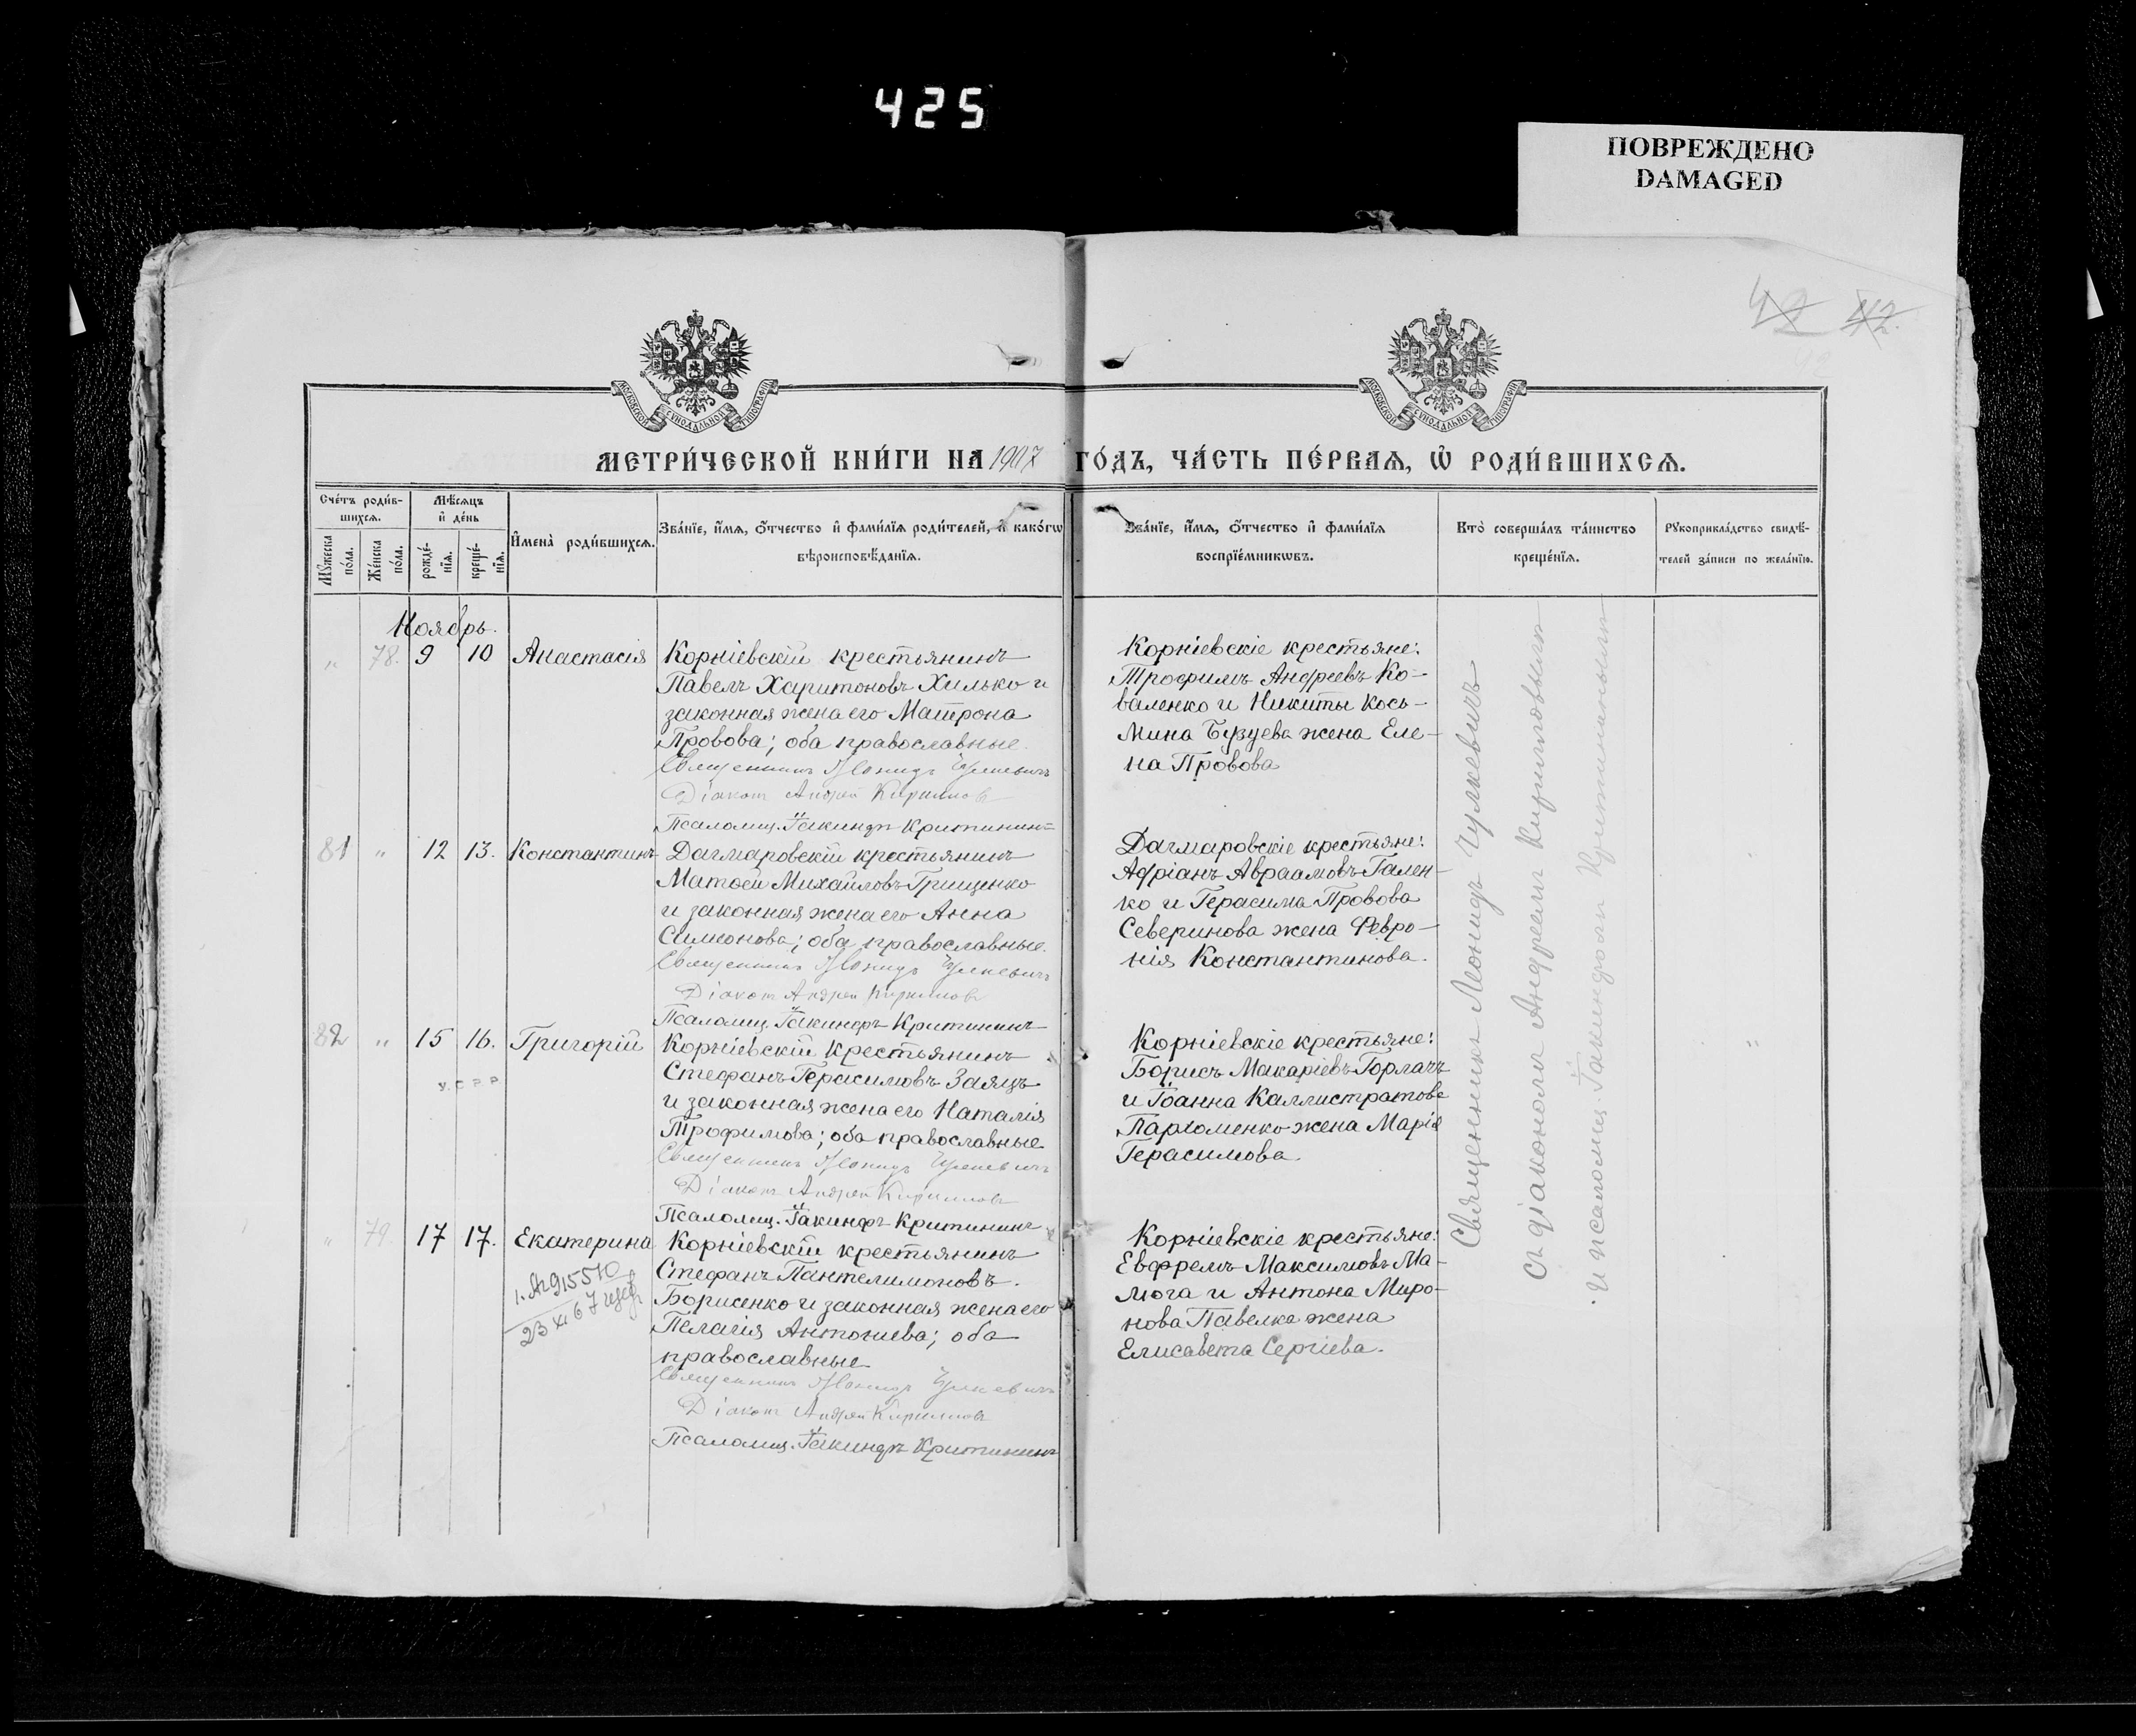 425
ПОВРЕЖДЕНО
DAMAGED
42 42.
МОСКОВСКОЙ СѴНОДАЛЬНОЙ ТИПОГРАФІИ
МОСКОВСКОЙ СѴНОДАЛЬНОЙ ТИПОГРАФІИ
МЕТРИ́ЧЕСКОЙ КНИ́ГИ НА 1907 ГО́ДЪ, ЧА́СТЬ ПЕ́РВАѦ, Ѡ҆ РОДИ́ВШИХСѦ.
Сче́тъ роди́в-
шихсѧ.
Мꙋ́жеска по́ла.
Же́нска по́ла.
Мѣ́сѧцъ и҆ де́нь
рожде́-нїѧ.
креще́-нїѧ.
И҆мена̀ роди́вшихсѧ.
Зва́нїе, и҆́мѧ, ѻ҆́тчество и҆ фами́лїѧ роди́телей, и҆ како́гѡ
вѣроисповѣ́данїѧ.
Зва́нїе, и҆́мѧ, ѻ҆́тчество и҆ фами́лїѧ
воспрїе́мникѡвъ.
Кто̀ соверша́лъ та́инство
креще́нїѧ.
Рꙋкоприкла́дство свидѣ́-
телей за́писи по жела́нїю.
Ноябрь.
" 78. 9 10 Анастасія
Корніевскій крестьянинъ
Павелъ Харитоновъ Хилько и
законная жена его Матрона
Провова; оба православные.
Священникъ Леонидъ Чулкевичъ
Діаконъ Андрей Кирилловъ
Псаломщ. Іакинфъ Критининъ
Корніевскіе крестьяне:
Трофимъ Андреевъ Ко-
валенко и Никиты Кось-
мина Бузуева жена Еле-
на Провова
81 " 12 13. Константинъ
Дагмаровскій крестьянинъ
Матѳей Михайловъ Грищенко
и законная жена его Анна
Симеонова; оба православные.
Священникъ Леонидъ Чулкевичъ
Діаконъ Андрей Кирилловъ
Псаломщ. Іакинфъ Критининъ
Дагмаровскіе крестьяне:
Адріанъ Авраамовъ Гален-
ко и Герасима Провова
Северинова жена Февро-
нія Константинова.
82 " 15 16. Григорій
У.С.Р.Р.
Корніевскій крестьянинъ
Стефанъ Герасимовъ Заяцъ
и законная жена его Наталія
Трофимова; оба православные
Священникъ Леонидъ Чулкевичъ
Діаконъ Андрей Кирилловъ
Псаломщ. Іакинфъ Критининъ
Корніевскіе крестьяне:
Борисъ Макаріевъ Горлачъ
и Іоанна Каллистратова
Пархоменко жена Марія
Герасимова.
" 79. 17 17. Екатерина
915510
23 XI 67
Корніевскій крестьянинъ
Стефанъ Пантелимоновъ.
Борисенко и законная жена его
Пелагія Антоніева; оба
православные
Священникъ Леонидъ Чулкевичъ
Діаконъ Андрей Кирилловъ
Псаломщ. Іакинфъ Критининъ
Корніевскіе крестьяне:
Евфремъ Максимовъ Ма-
люга и Антона Миро-
нова Павелка жена
Елисавета Сергіева.
Священникъ Леонидъ Чулкевичъ
съ діакономъ Андреемъ Кирилловымъ
и псаломщ. Іакинфомъ Критининымъ